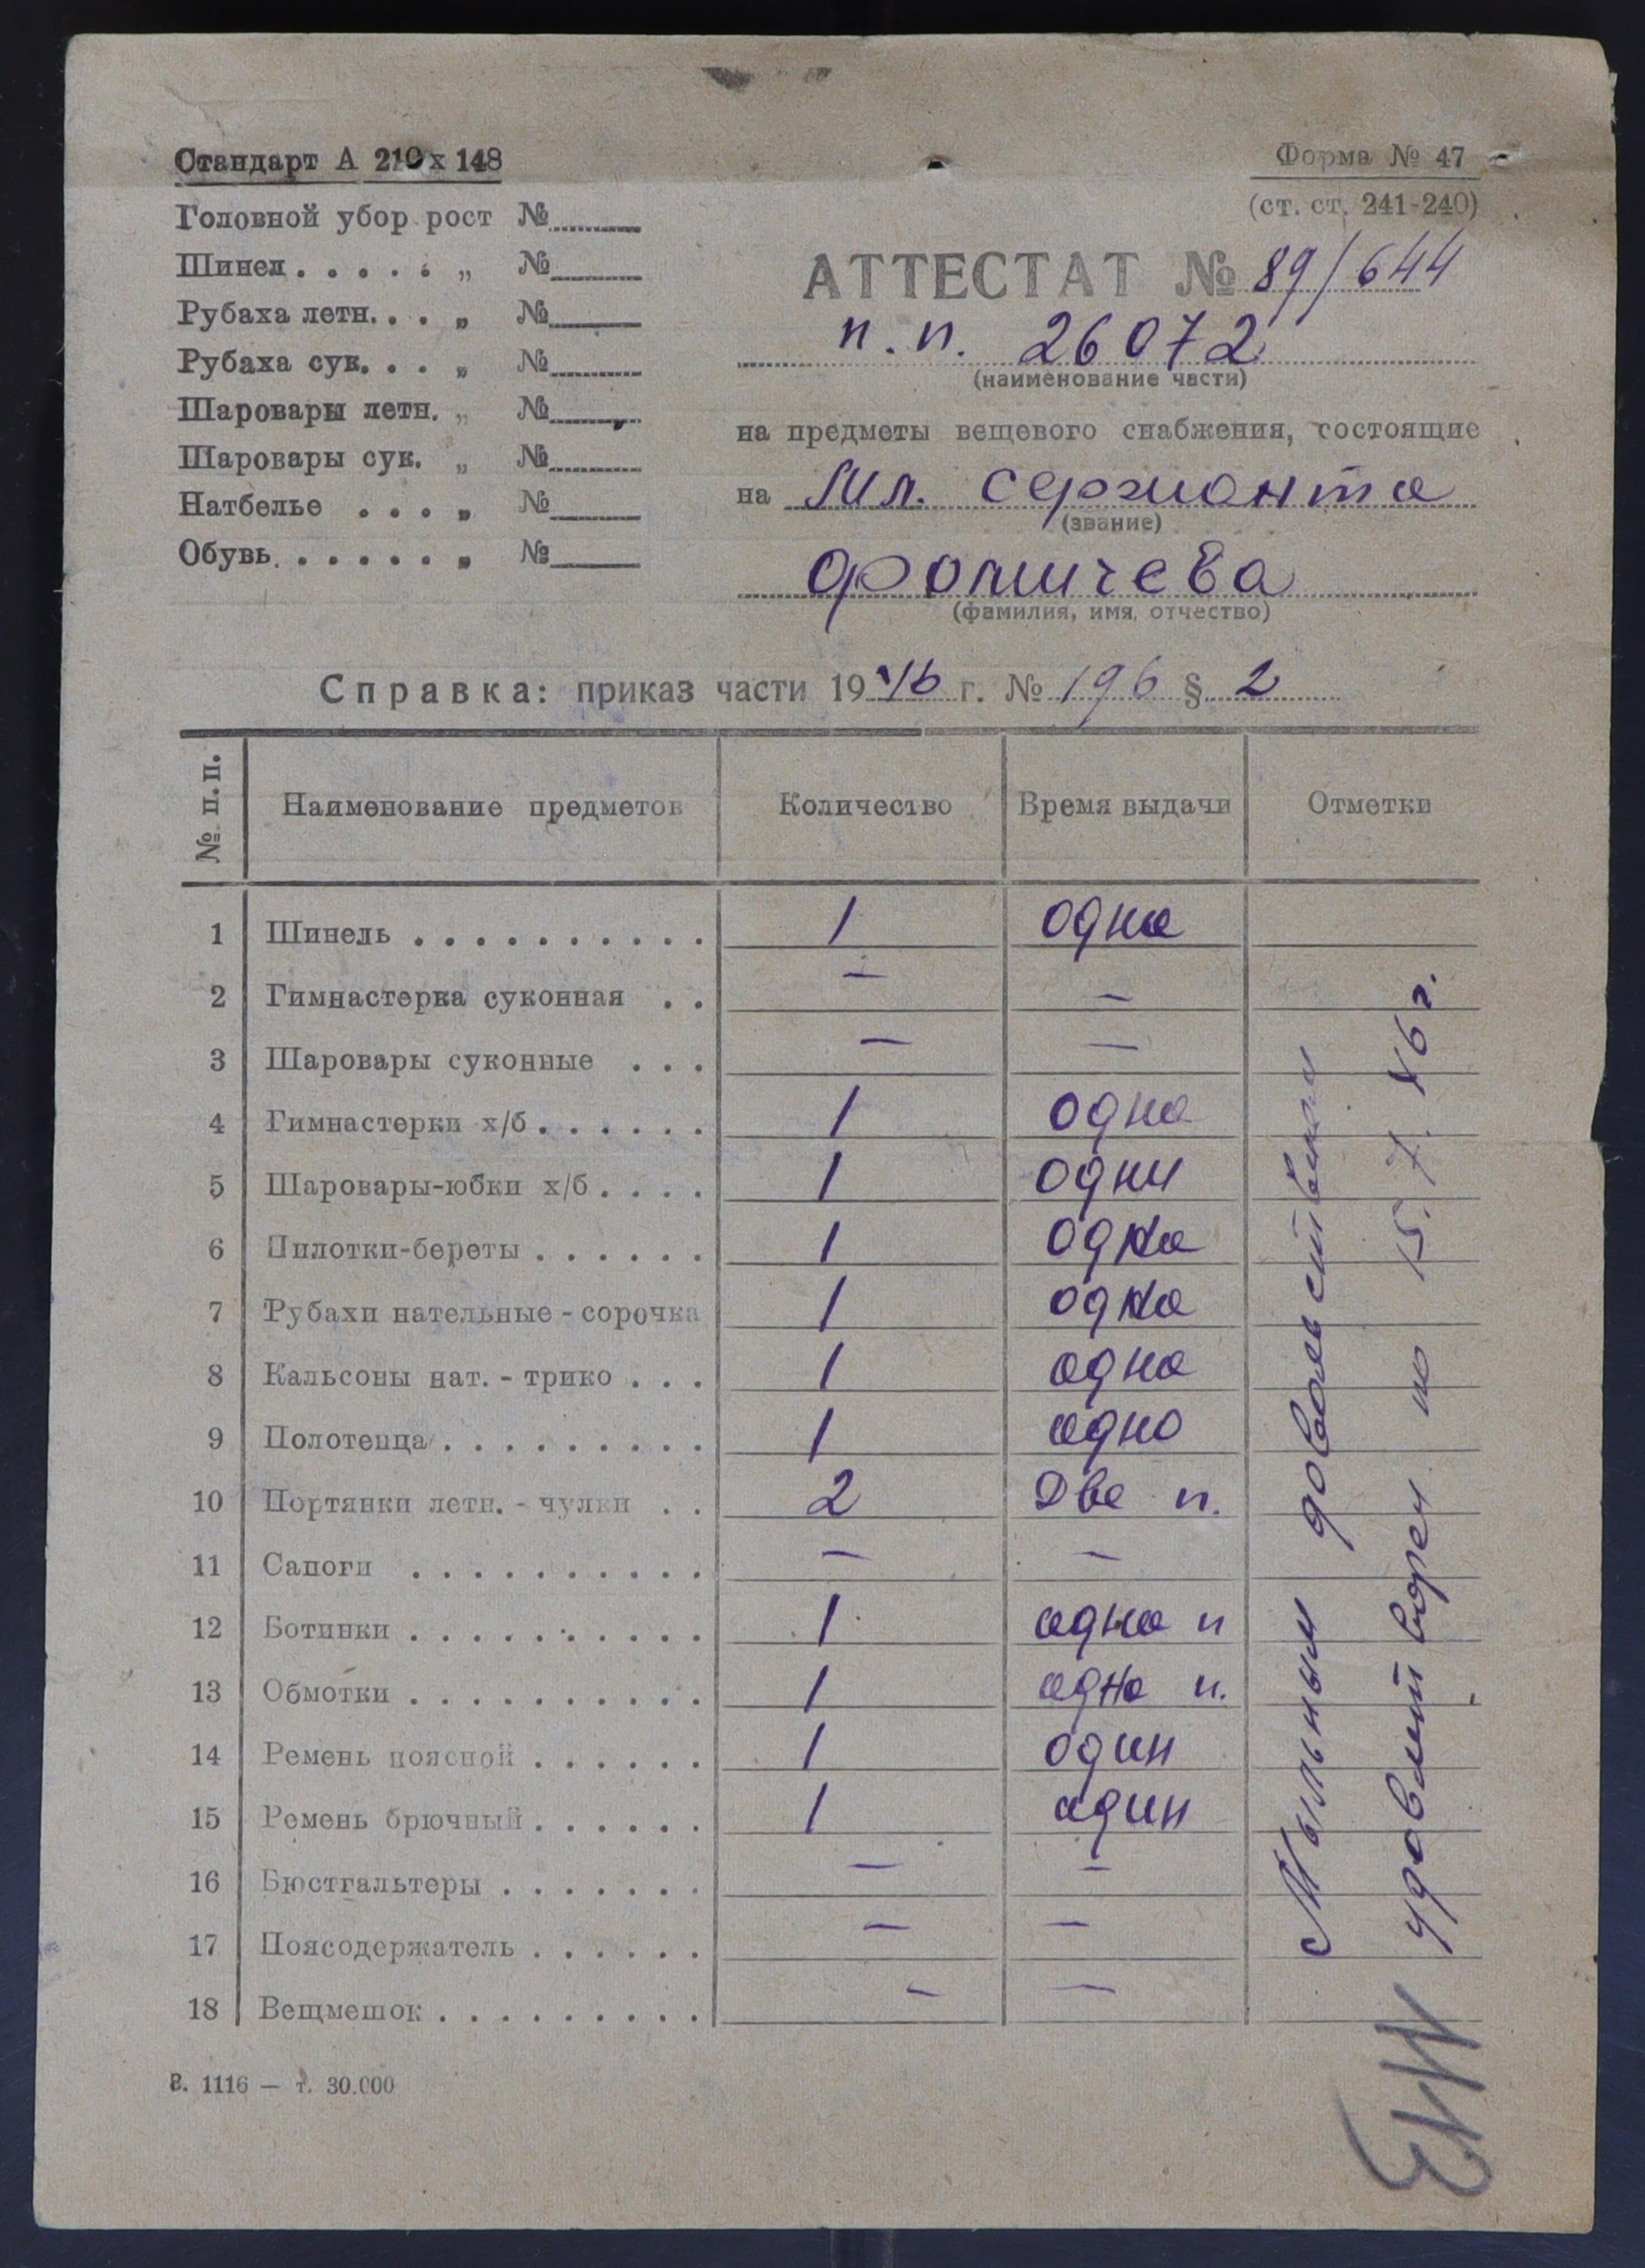 Стандарт А 210 х 148
Головной убор рост №
Шинел . . . . . „ №
Рубаха летн. . . „ №
Рубаха сук. . . „ №
Шаровары летн. „ №
Шаровары сук. „ №
Натбелье . . . „ №
Обувь . . . . . . „ №
Форма № 47
(ст. ст. 241-240)
АТТЕСТАТ № 89/644
п. п. 26072
(наименование части)
на предметы вещевого снабжения, состоящие
на Мл. сержанта
(звание)
Фомичева
(фамилия, имя, отчество)
Справка: приказ части 1946 г. № 196 § 2
№ п.п. Наименование предметов Количество Время выдачи Отметки
1 Шинель . . . . . . . . . . 1 одна
2 Гимнастерка суконная . . — —
3 Шаровары суконные . . . — —
4 Гимнастерки х/б . . . . . . 1 одна
5 Шаровары-юбки х/б . . . . 1 одни
6 Пилотки-береты . . . . . . 1 одна
7 Рубахи нательные - сорочка 1 одна
8 Кальсоны нат. - трико . . . 1 одна
9 Полотенца . . . . . . . . . 1 одно
10 Портянки летн. - чулки . . 2 Две п.
11 Сапоги . . . . . . . . . . — —
12 Ботинки . . . . . . . . . . 1 одна п
13 Обмотки . . . . . . . . . . 1 одна п.
14 Ремень поясной . . . . . . 1 один
15 Ремень брючный . . . . . . 1 один
16 Бюстгальтеры . . . . . . . — —
17 Поясодержатель . . . . . . — —
18 Вещмешок . . . . . . . . . — —
Мыльным довольствием
удовлетворен по 15. 7. 46 г.
З. 1116 — т. 30.000